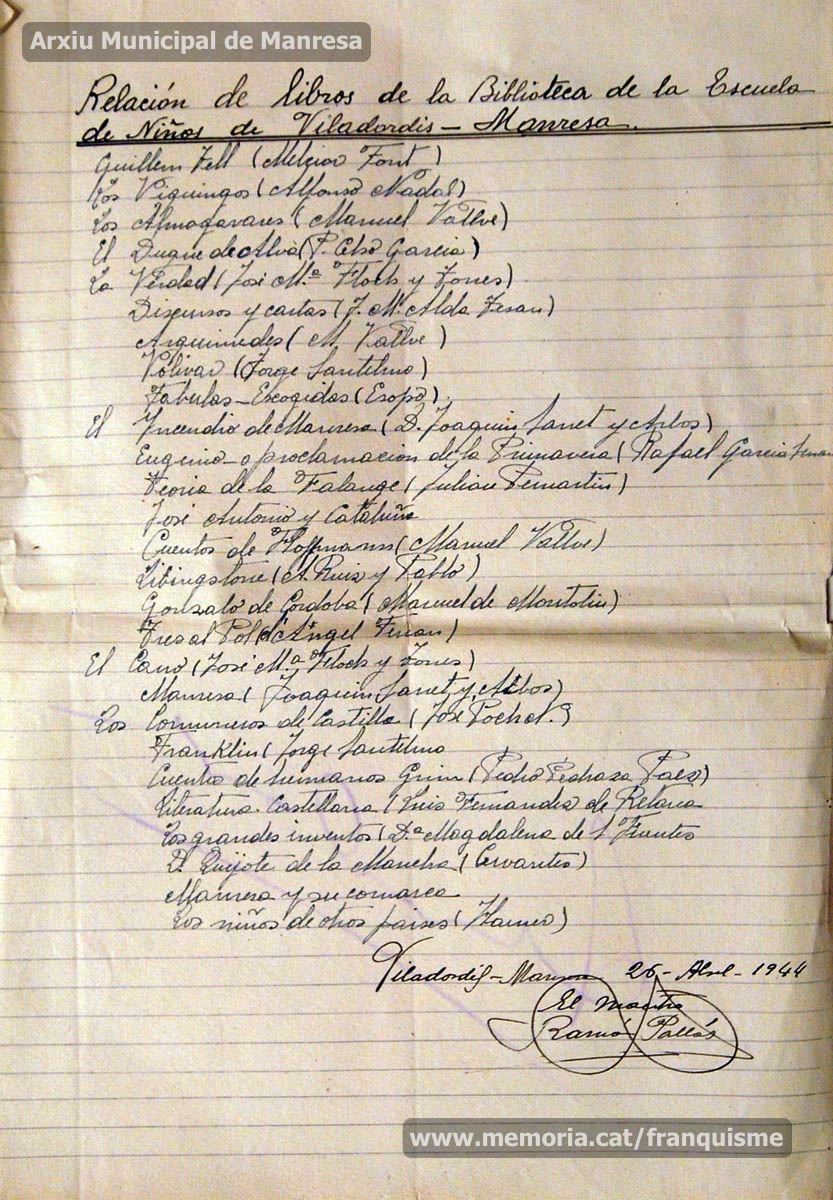 Arxiu Municipal de Manresa
Relación de libros de la Biblioteca de la Escuela
de Niños de Viladordis - Manresa.
Guillem Tell (Melcior Font)
Los Viquingos (Alfonso Nadal)
Los Almogavares (Manuel Vallve)
El Duque de Alva (P. Celso Garcia)
La Verdad (José Mª Floch y Torres)
Discursos y cartas (J. Mª Alda Tesan)
Arquimedes (M. Vallve)
Volivar (Jorge Santelmo)
Fabulas - Escogidas (Esopo)
El Incendio de Manresa (D. Joaquin Sarret y Arbos)
Eugenio o proclamacion de la Primavera (Rafael Garcia
Teoria de la Falange (Julian Pemartin)
José Antonio y Cataluña
Cuentos de Hoffmanns (Manuel Vallve)
Libingstone (A. Ruiz y Pablo)
Gonzalo de Cordoba (Manuel de Montoliu)
Tres al Pol (d'Angel Ferran)
El Cano (José Mª Floch y Torres)
Manresa (Joaquin Sarret y Arbos)
Los Comuneros de Castilla (José Poch
Franklin (Jorge Santelmo
Cuentos de hermanos Grim (Pedro Pedraza Paez)
Literatura Castellana (Luis Fernandez de Retana
Los grandes inventos (Dª Magdalena de S. Fuentes
D. Quijote de la Mancha (Cervantes)
Manresa y su comarca
Los niños de otros paises
Viladordis - Manresa 26 - Abril - 1944
El maestro
Ramón Pallás
www.memoria.cat/franquisme